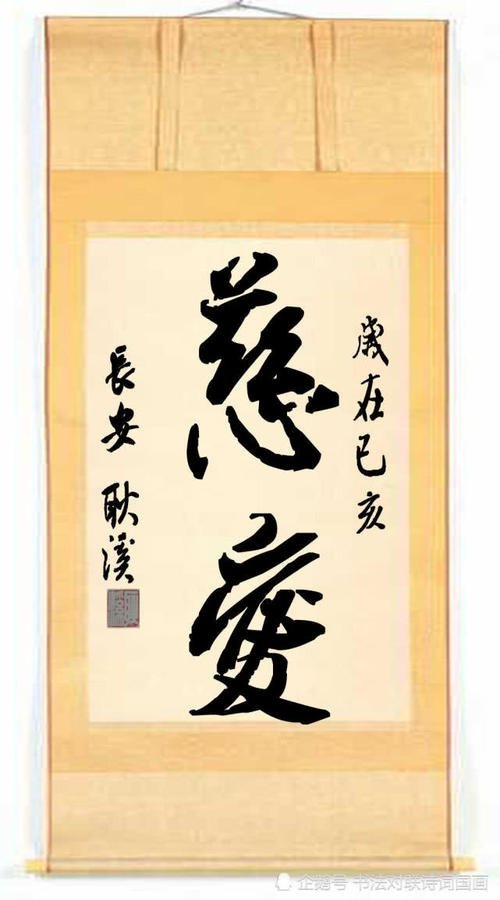 歲在己亥
慈愛
長安 耿溪
企鹅号 书法对联诗词国画